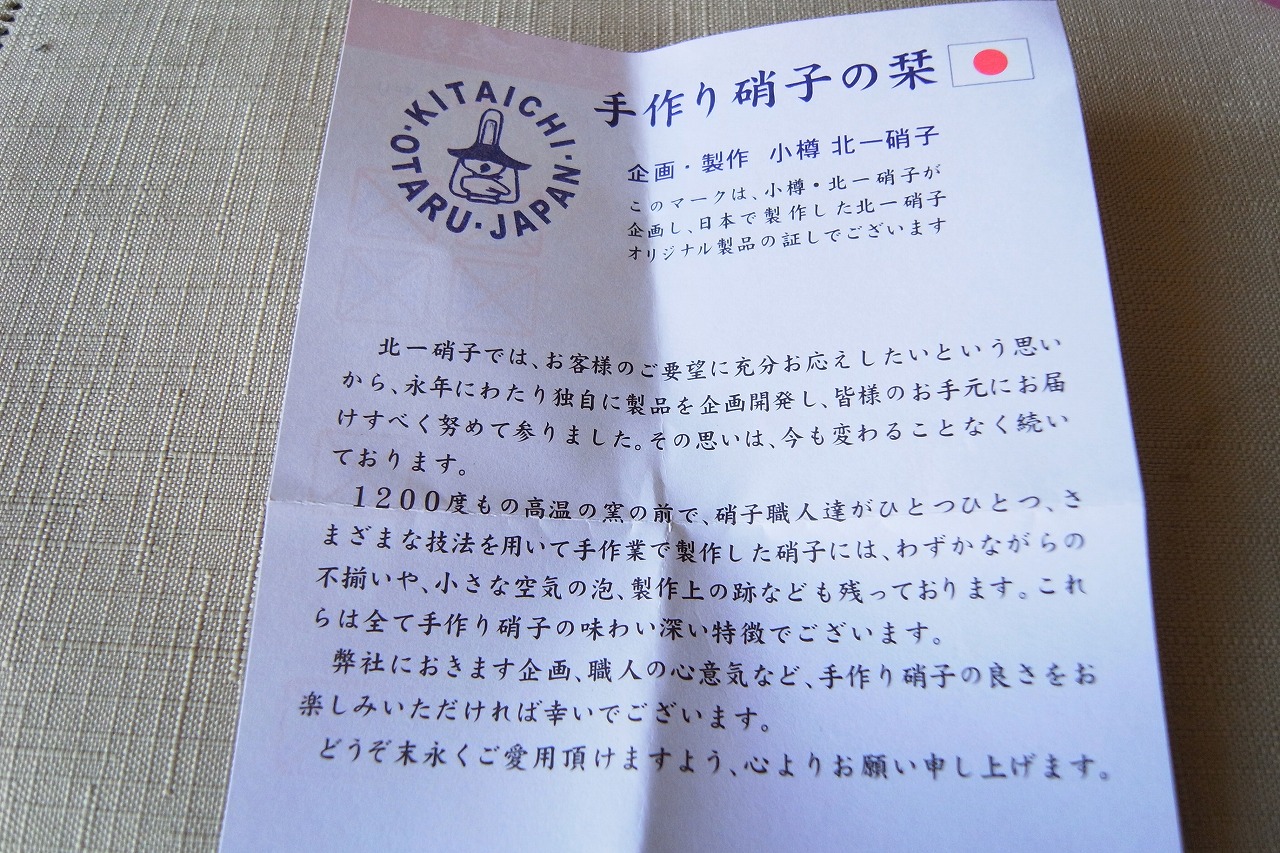 KITAICHI・OTARU・JAPAN・
手作り硝子の栞
企画・製作 小樽 北一硝子
このマークは、小樽・北一硝子が
企画し、日本で製作した北一硝子
オリジナル製品の証しでございます
北一硝子では、お客様のご要望に充分お応えしたいという思い
から、永年にわたり独自に製品を企画開発し、皆様のお手元にお届
けすべく努めて参りました。その思いは、今も変わることなく続い
ております。
１２００度もの高温の窯の前で、硝子職人達がひとつひとつ、さ
まざまな技法を用いて手作業で製作した硝子には、わずかながらの
不揃いや、小さな空気の泡、製作上の跡なども残っております。これ
らは全て手作り硝子の味わい深い特徴でございます。
弊社におきます企画、職人の心意気など、手作り硝子の良さをお
楽しみいただければ幸いでございます。
どうぞ末永くご愛用頂けますよう、心よりお願い申し上げます。